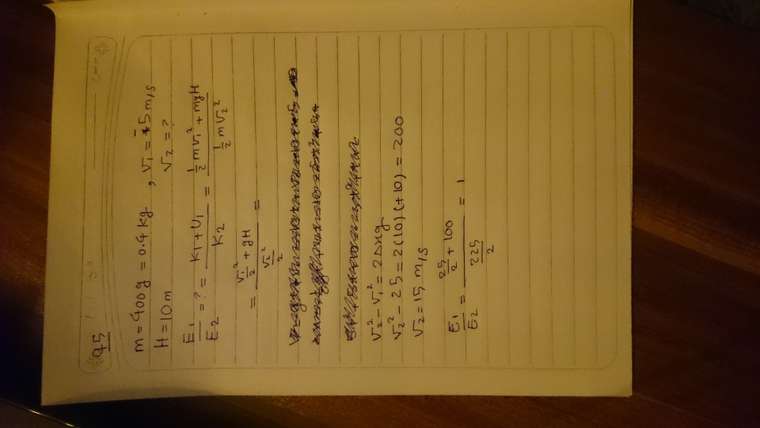 95
m = 400g = 0.4 kg , v₁ = -5 m/s
H = 10 m v₂ = ?
E₁/E₂ = ? = (K₁ + U₁)/K₂ = (½ m v₁² + mgH)/(½ m v₂²)
= (v₁²/2 + gH)/(v₂²/2) =
v₂² - v₁² = 2 Δx g
v₂² - 25 = 2(10)(+10) = 200
v₂ = 15 m/s
E₁/E₂ = (25/2 + 100)/(225/2) = 1